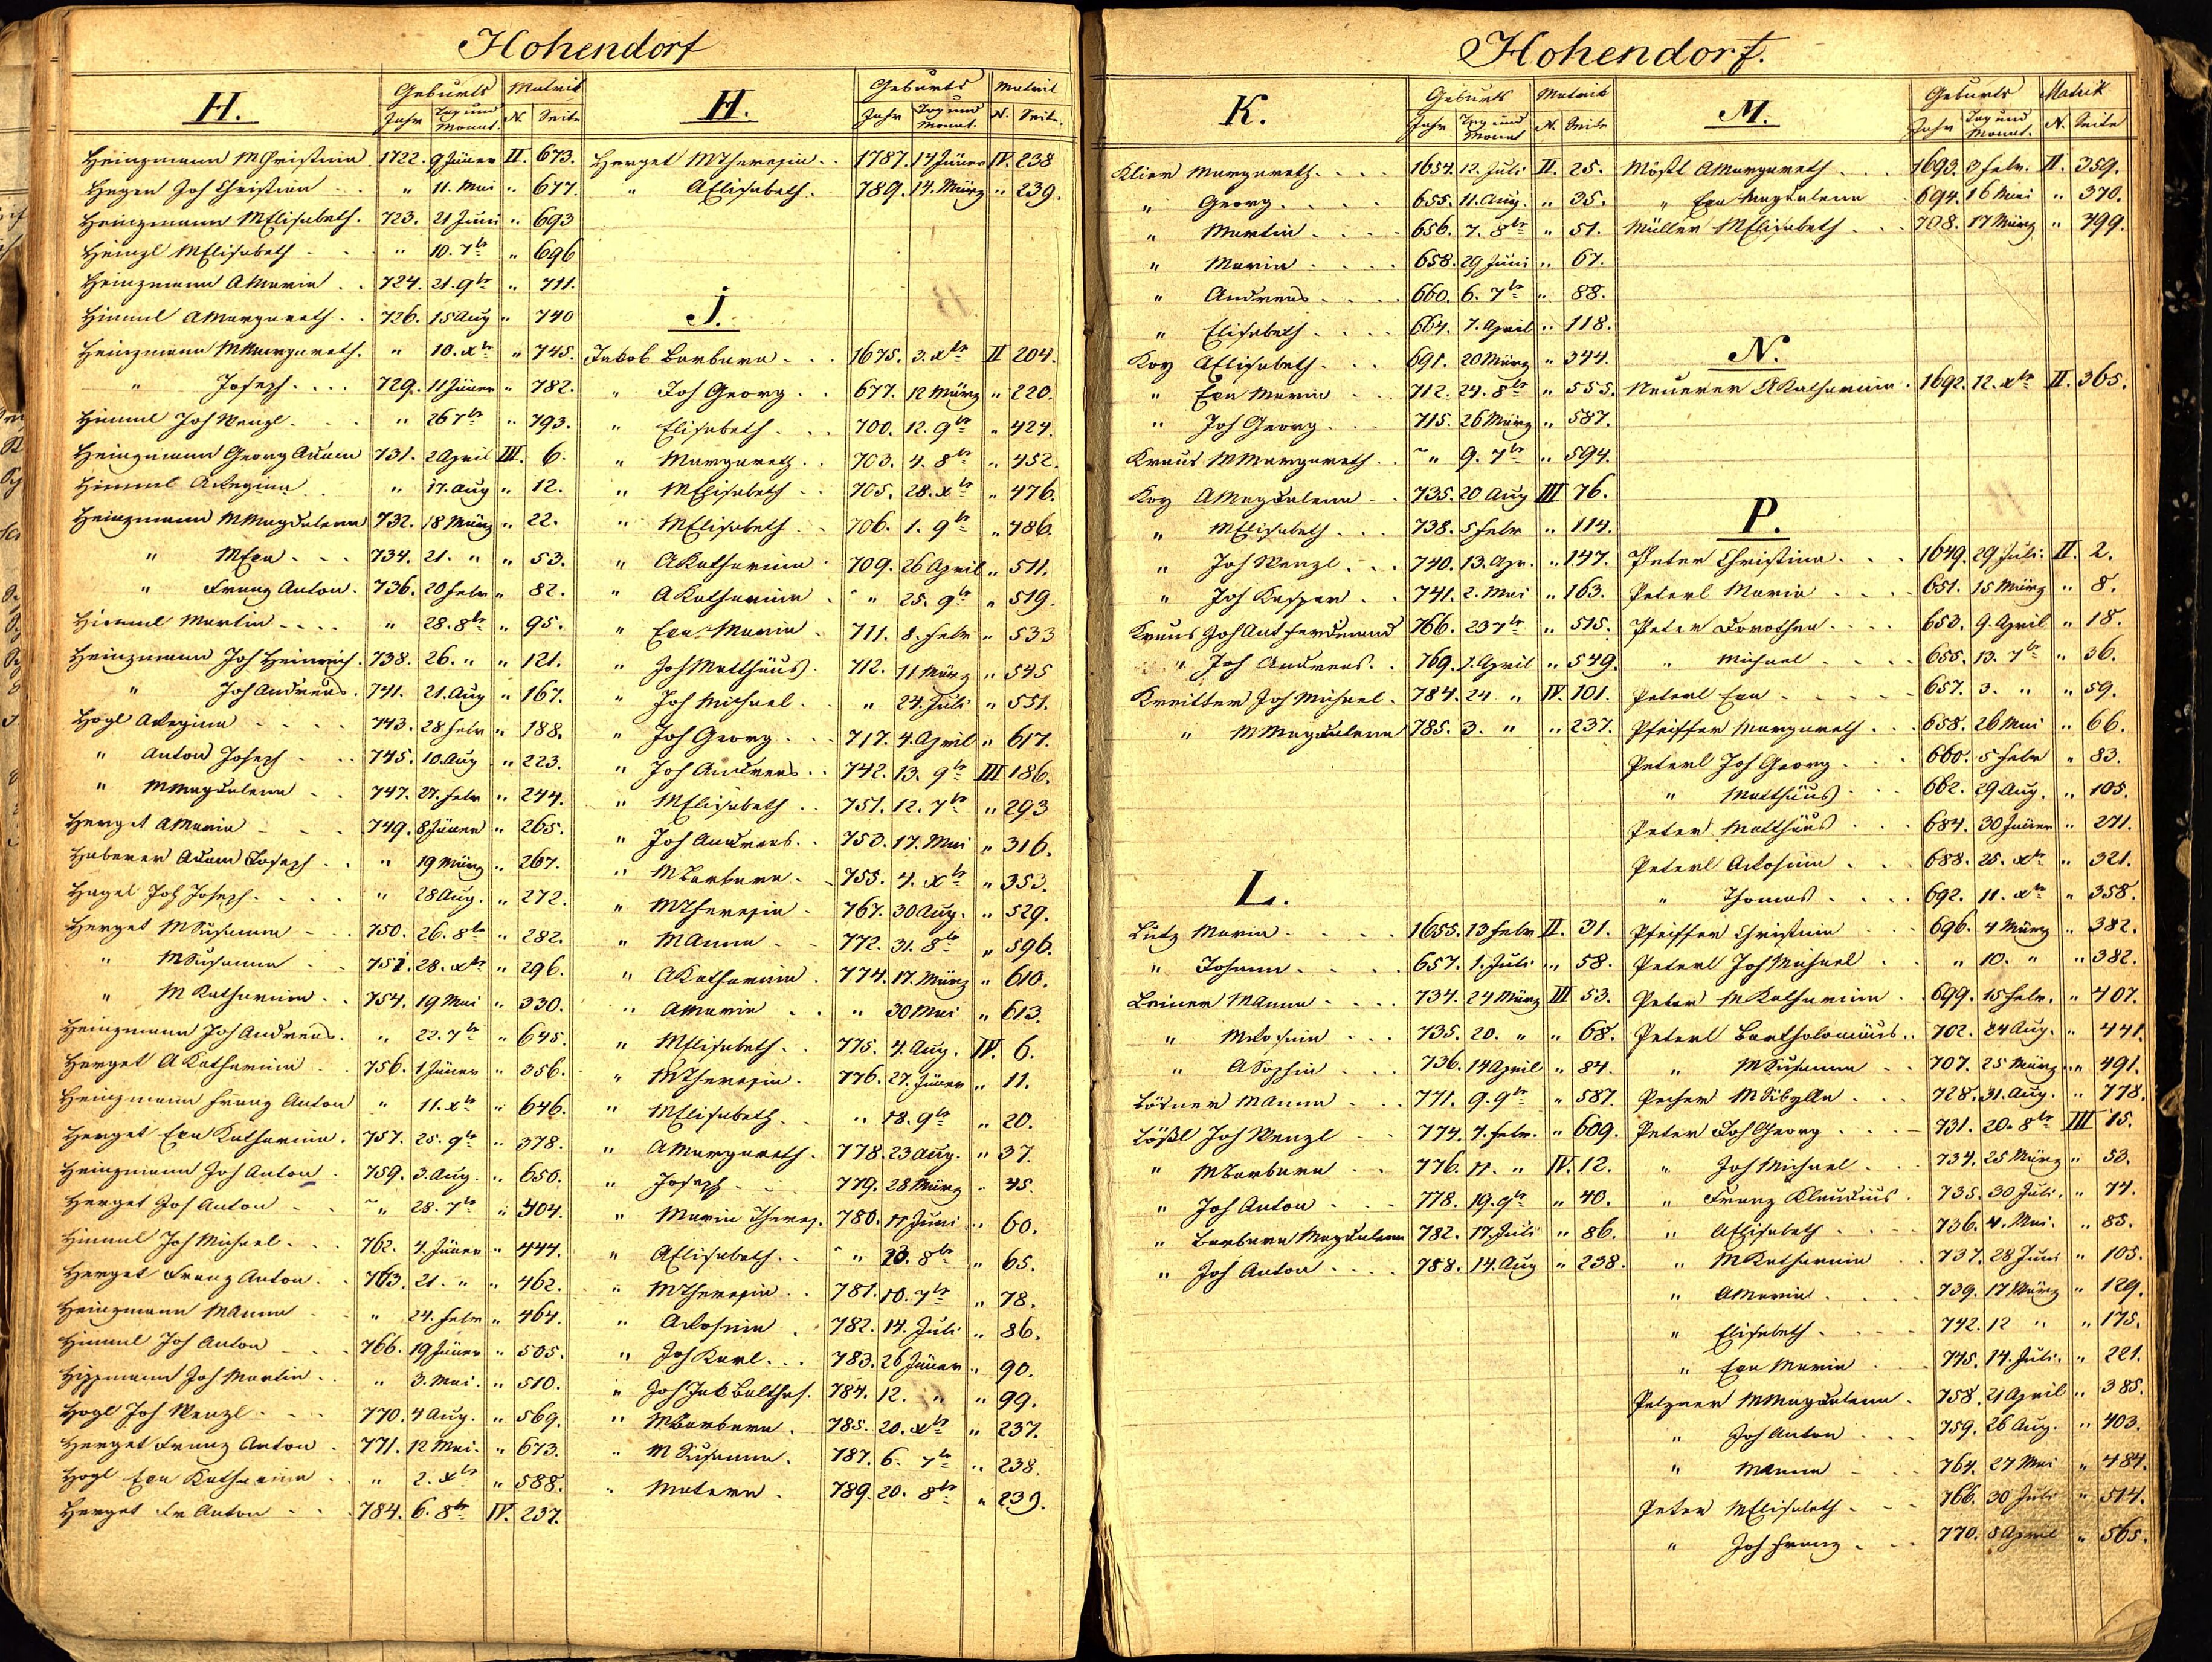 Hohendorf
H.
Geburts Matrik
Jahr Tag und Monat. N. Seite
Heinzmann MChristina. 1722. 9 Jäner II. 673.
Hegen Joh Christian " 11. Mai " 677.
Heinzmann MElisabeth. 723. 21 Juni " 693
Heinzl MElisabeth " 10. 7br " 696
Heinzmann AMaria 724. 21. 9br " 711.
Himml AMargareth 726. 15 Aug " 740
Heinzmann MMargareth. " 10. Xbr " 745.
" Joseph 729. 11 Jäner " 782.
Himml Joh Wenzl " 26 7br " 793.
Heinzmann Georg Adam 731. 2 April III. 6.
Himml ARegina " 17. Aug " 12.
Heinzmann MMagdalena 732. 18 März " 22.
" MEva 734. 21. " " 53.
" Franz Anton. 736. 20 Febr " 82.
Himml Martin " 28. 8br " 95.
Heinzmann Joh Heinrich. 738. 26. " " 121.
" Joh Andreas. 741. 21. Aug " 167.
Hogl ARegina 743. 28 Febr " 188.
" Anton Joseph 745. 10. Aug " 223.
" MMagdalena 747. 27. Febr " 244.
Herget AMaria 749. 8 Jäner " 265.
Haberer Adam Joseph " 19 März " 267.
Hagel Joh Joseph " 28 Aug. " 272.
Herget MSusanna 750. 26. 8br " 282.
" MSusanna 751. 28. Xbr " 296.
" MKatharina 754. 19 Mai " 330.
Heinzmann Joh Andreas. " 22. 7br " 645.
Herget AKatharina 756. 1 Jäner " 356.
Heinzmann Franz Anton " 11. Xbr " 646.
Herget Eva Katharina. 757. 25. 9br " 378.
Heinzmann Joh Anton 759. 3. Aug. " 650.
Herget Joh Anton " 28. 7br " 404.
Himml Joh Michael 762. 4. Jäner " 444.
Herget Franz Anton 763. 21. " " 462.
Heinzmann MAnna " 24. Febr " 464.
Himml Joh Anton 766. 19 Jäner " 505.
Hippmann Joh Martin " 3. Mai. " 510.
Hogl Joh Wenzl 770. 4 Aug. " 569.
Herget Franz Anton 771. 12 Mai. " 673.
Hogl Eva Katharina " 2. Xbr " 588.
Herget Fr Anton 784. 6. 8br IV. 237.
H.
Geburts Matrik
Jahr Tag und Monat. N. Seite.
Herget MTheresia 1787. 14 Jäner IV. 238
" AElisabeth. 789. 14. März " 239.
J.
Jakob Barbara 1675. 3. Xbr II 204.
" Joh Georg 677. 12 März " 220.
" Elisabeth 700. 12. 9br " 424.
" Margareth 703. 4. 8br " 452.
" MElisabeth 705. 28. Xbr " 476.
" MElisabeth 706. 1. 9br " 486.
" AKatharina 709. 26 April " 511.
" AKatharina " 25. 9br " 519.
" Eva Maria 711. 8. Febr " 533
" Joh Matthäus 712. 11 März " 545
" Joh Michael " 24. Juli " 551.
" Joh Georg 717. 4. April " 617.
" Joh Andreas 742. 13. 9br III 186.
" MElisabeth 751. 12. 7br " 293
" Joh Andreas 753. 17. Mai " 316.
" MBarbara 755. 4. Xbr " 353.
" MTheresia 767. 30 Aug. " 529.
" MAnna 772. 31. 8br " 596.
" AKatharina 774. 17. März " 610.
" AMaria " 30 Mai " 613.
" MElisabeth 775. 4. Aug. IV. 6.
" MTheresia 776. 27. Jäner " 11.
" MElisabeth " 18. 9br " 20.
" AMargareth. 778. 23 Aug. " 37.
" Joseph 779. 28 März " 45.
" Maria Theres. 780. 17 Juni " 60.
" AElisabeth " 23. 8br " 65.
" MTheresia 781. 10. 7br " 78.
" ARosina 782. 14. Juli " 86.
" Joh Karl 783. 26 Jäner " 90.
" Joh Jak Balthas. 784. 12. " " 99.
" MBarbara. 785. 20. Xbr " 237.
" MSusanna. 787. 6. 7br " 238.
" Matern. 789. 20. 8br " 239.
Hohendorf.
K.
Geburts Matrik
Jahr Tag und Monat N. Seite
Klier Margareth 1654. 12. Juli II. 25.
" Georg 655. 11. Aug. " 35.
" Martin 656. 7. 8br " 51.
" Maria 658. 29 Juni " 67.
" Andreas 660. 6. 7br " 88.
" Elisabeth 664. 7. April " 118.
Koy AElisabeth 691. 20 März " 344.
" Eva Maria 712. 24. 8br " 555.
" Joh Georg 715. 26 März " 587.
Kraus MMargareth " 9. 7br " 594.
Koy AMagdalena 735. 20 Aug III 76.
" MElisabeth 738. 5 Febr " 114.
" Joh Wenzl 740. 13. Apr. " 147.
" Joh Kaspar 741. 2. Mai " 163.
Kraus Joh Ant Ferdinand 766. 23 7br " 515.
" Joh Andreas 769. 1. April " 549.
Kreitter Joh Michael. 784. 24 " IV. 101.
" MMagdalena 785. 3. " " 237.
L.
Lutz Maria 1655. 13 Febr II. 31.
" Johann 657. 1. Juli " 58.
Leiner MAnna 734. 24 März III 53.
" MRosina 735. 20. " " 68.
" ASophia 736. 14 April " 84.
Lösner MAnna 771. 9. 9br " 587.
Lößl Joh Wenzl 774. 4. Febr. " 609.
" MBarbara 776. 11. " IV. 12.
" Joh Anton 778. 19. 9br " 40.
" Barbara Magdalena 782. 17. Juli " 86.
" Joh Anton 788. 14. Aug " 238.
M.
Geburts Matrik
Jahr Tag und Monat. N. Seite
Mößl AMargareth 1693. 3 Febr. II. 359.
" Eva Magdalena 694. 16 Mai " 370.
Müller MElisabeth 708. 17 März " 499.
N.
Neuerer AKatharina 1692. 12. Xbr II. 365.
P.
Peter Christina 1649. 29 Juli. II. 2.
Peterl Maria 651. 15 März " 8.
Peter Dorothea 653. 9. April " 18.
" Michael 655. 13. 7br " 36.
Peterl Eva 657. 3. " " 59.
Pfeiffer Margareth 658. 26 Mai " 66.
Peterl Joh Georg 660. 5 Febr " 83.
" Matthäus 662. 29 Aug. " 105.
Peter Matthäus 684. 30 Jäner " 271.
Peterl ARosina 688. 25. Xbr " 321.
" Thomas 692. 11. Xbr " 358.
Pfeiffer Christina 696. 4 März " 382.
Peterl Joh Michael " 10. " " 382.
Peter MKatharina 699. 15 Febr. " 407.
Peterl Bartholomäus 702. 24 Aug. " 441.
" MSusanna 707. 25 März " 491.
Pecher MSibylla 728. 31. Aug. " 778.
Peter Joh Georg 731. 20. 8br III 15.
" Joh Michael 734. 25 März " 53.
" Franz Klaudius 735. 30 Juli. " 74.
" AElisabeth 736. 4. Mai. " 85.
" MKatharina 737. 28 Juni " 105.
" AMaria 739. 17 März " 129.
" Elisabeth 742. 12 " " 175.
" Eva Maria 745. 14. Juli. " 221.
Pelzner MMagdalena 758. 21 April " 385.
" Joh Anton 759. 26 Aug. " 403.
" MAnna 764. 27 Mai " 484.
Peter MElisabeth 766. 30 Juli " 514.
" Joh Franz 770. 8 April " 565.